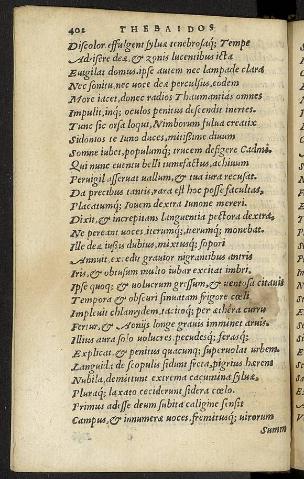 402 THEBAIDOS
Discolor. effulgent syluæ tenebrosaq; Tempe
Adisere deæ. & zonis lucentibus icta
Euigilat domus. ipse autem nec lampade clara
Nec sonitu, nec uoce deæ perculsus, eodem
More iacet, donec radios Thaumantias omnes
Impulit, inq; oculos penitus descendit inertes.
Tunc sic orsa loqui, Nimborum fulua creatrix
Sidonios te Iuno duces, mitissime diuum
Somne iubet, populumq; trucem defigere Cadmi.
Qui nunc euentu belli tumefactus, achiuum
Peruigil asseruat uallum, & tua iura recusat.
Da precibus tantis, rara est hoc posse facultas,
Placatumq; Iouem dextra Iunone mereri.
Dixit, & increpitans languentia pectora dextra,
Ne pereant uoces, iterumq; iterumq; monebat.
Ille deæ iussus dubius, mixtusq; sopori
Annuit. excedit grauior nigrantibus antris
Iris, & obtusum multo iubar excitat imbri.
Ipse quoq; & uolucrum gressum, & uentosa citauit
Tempora & obscuri sinuatam frigore cœli
Impleuit chlamydem. tacitoq; per æthera cursu
Fertur, & Aonijs longe grauis imminet aruis.
Illius aura solo uolucres, pecudesq; ferasq;
Explicat. & penitus quacunq; superuolat urbem.
Languida de scopulis sidunt freta, pigrius hærent
Nubila, demittunt extrema cacumina syluæ,
Pluraq; laxato ceciderunt sidera cœlo.
Primus adesse deum subita caligine sensit
Campus, & innumeræ uoces, fremitusq; uirorum
Summi